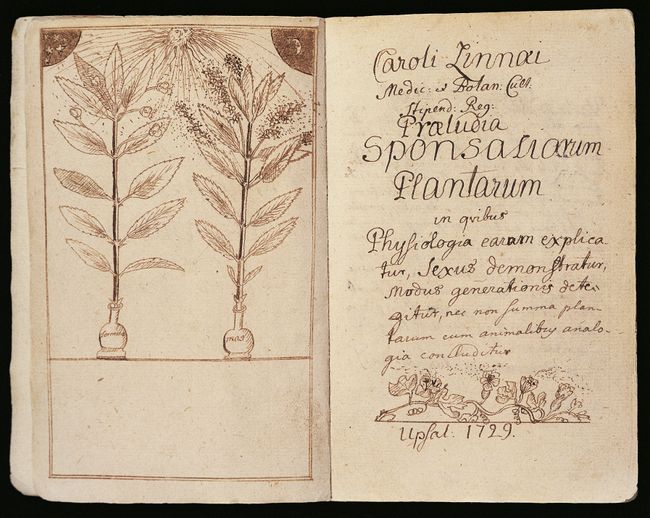 femina
mas
Caroli Linnæi
Medic: & Botan: Cult:
Stipend: Reg:
Præludia
Sponsaliarum
Plantarum
in qvibus
Physiologia earum explica-
tur, Sexus demonstratur,
Modus generationis dete-
gitur, nec non summa plan-
tarum cum animalibus analo-
gia concluditur
Upsal. 1729.